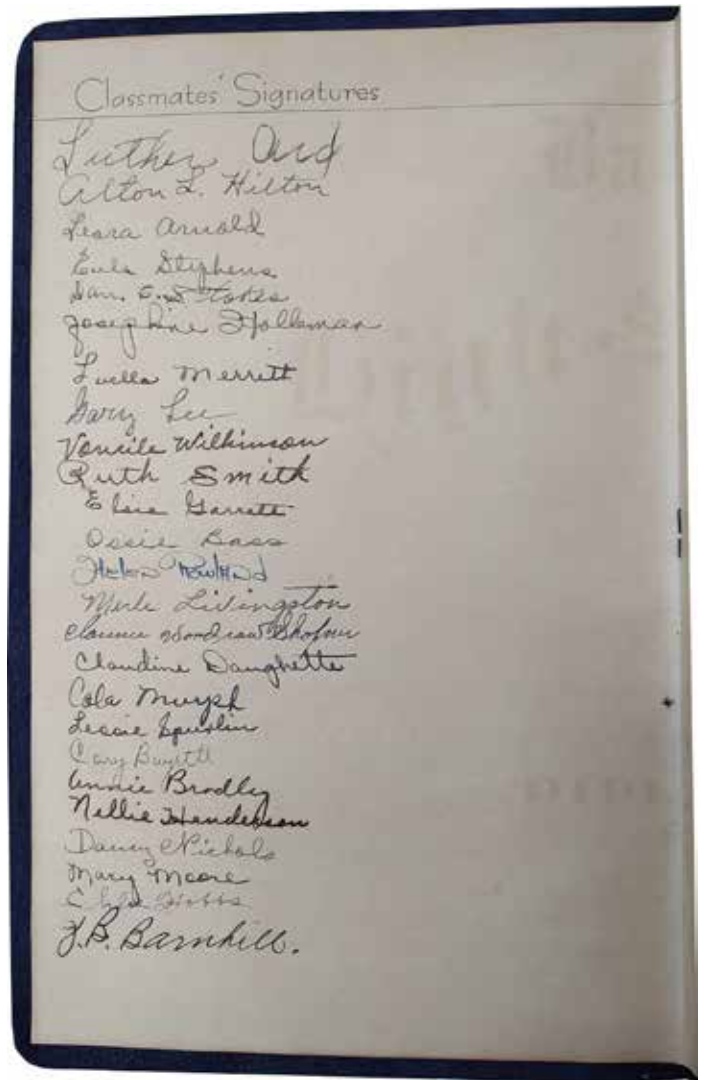 Classmates' Signatures
Luther Ard
Alton L. Hilton
Leara Arnold
Eula Stephens
Stokes
Josephine Holleman
Luella Merritt
Gary Lee
Voncile Wilkinson
Ruth Smith
Elsie Garrett
Ossie Bass
Helen Rowland
Merle Livingston
Clarence Woodraw Shofner
Claudine Daughette
Cola Murph
Lessie Spurlin
Cary
Annie Bradley
Nellie Henderson
Nichols
Mary Moore
Hobbs
J.B. Barnhill.